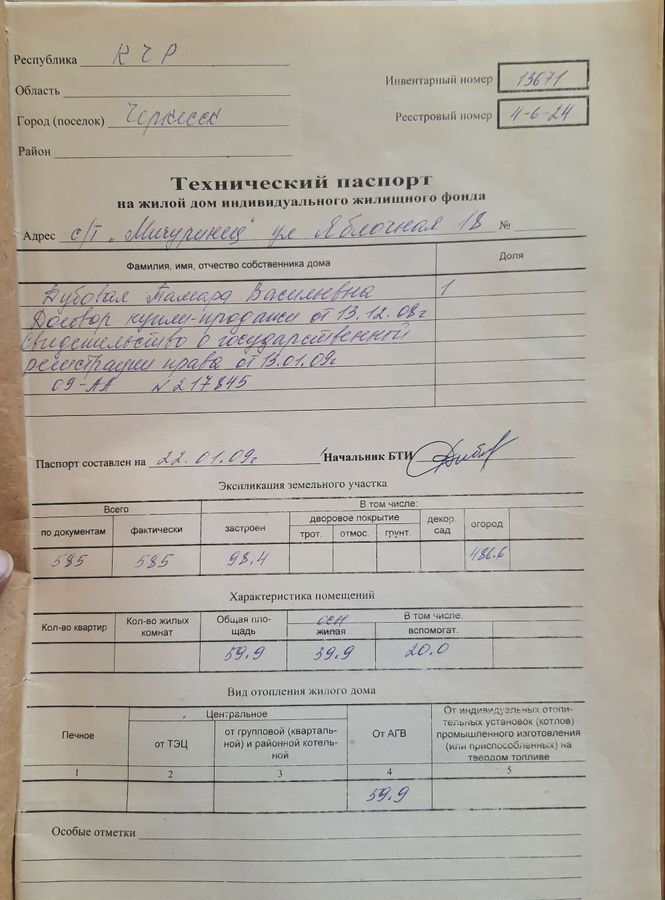 Республика КЧР
Инвентарный номер 13671
Область
Город (поселок) Черкесск
Реестровый номер 4-6-24
Район
Технический паспорт
на жилой дом индивидуального жилищного фонда
Адрес с/т „Мичуринец" ул Яблочная 18 №
Фамилия, имя, отчество собственника дома Доля
Дубовая Тамара Васильевна 1
Договор купли-продажи от 13.12.08г
Свидетельство о государственной
регистрации права от 13.01.09г
09-АА N 217845
Паспорт составлен на 22.01.09г Начальник БТИ
Экспликация земельного участка
Всего В том числе:
по документам фактически застроен дворовое покрытие декор. сад огород
трот. отмос. грунт.
585 585 98.4 486.6
Характеристика помещений
Кол-во квартир Кол-во жилых комнат Общая пло-щадь В том числе:
осн
жилая вспомогат.
59.9 39.9 20.0
Вид отопления жилого дома
Печное Центральное От АГВ От индивидуальных отопи-
тельных установок (котлов)
промышленного изготовления
(или приспособленных) на
твердом топливе
от ТЭЦ от групповой (кварталь-
ной) и районной котель-
ной
1 2 3 4 5
59.9
Особые отметки